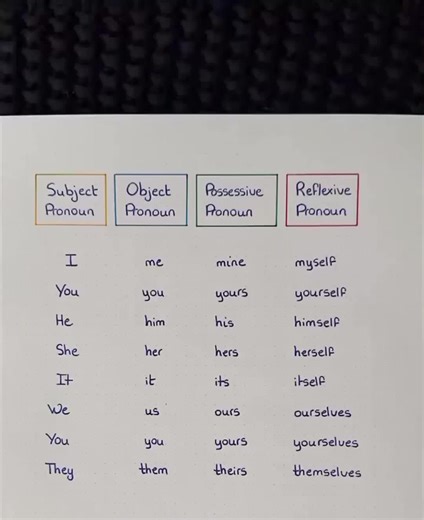 Subject Object Possessive Reflexive
Pronoun Pronoun Pronoun Pronoun
I me mine myself
You you yours yourself
He him his himself
She her hers herself
It it its itself
We us ours ourselves
You you yours yourselves
They them theirs themselves